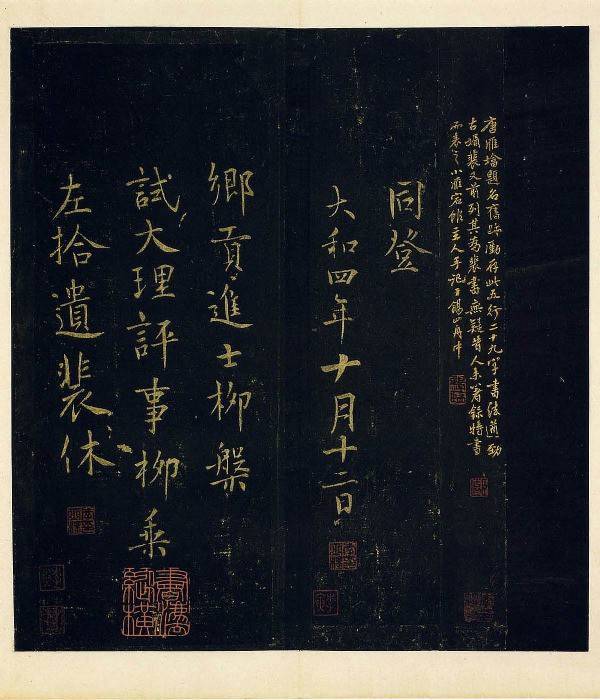 左拾遺裴休
試大理評事柳乘
鄉貢進士柳槃
大和四年十月十二日
同登
唐雁塔題名舊跡存此五行二十九字書法遒勁
古媚裴又前列其為裴書無疑昔人未著錄特書
而表之小雁宕館主人手記于錫山舟中